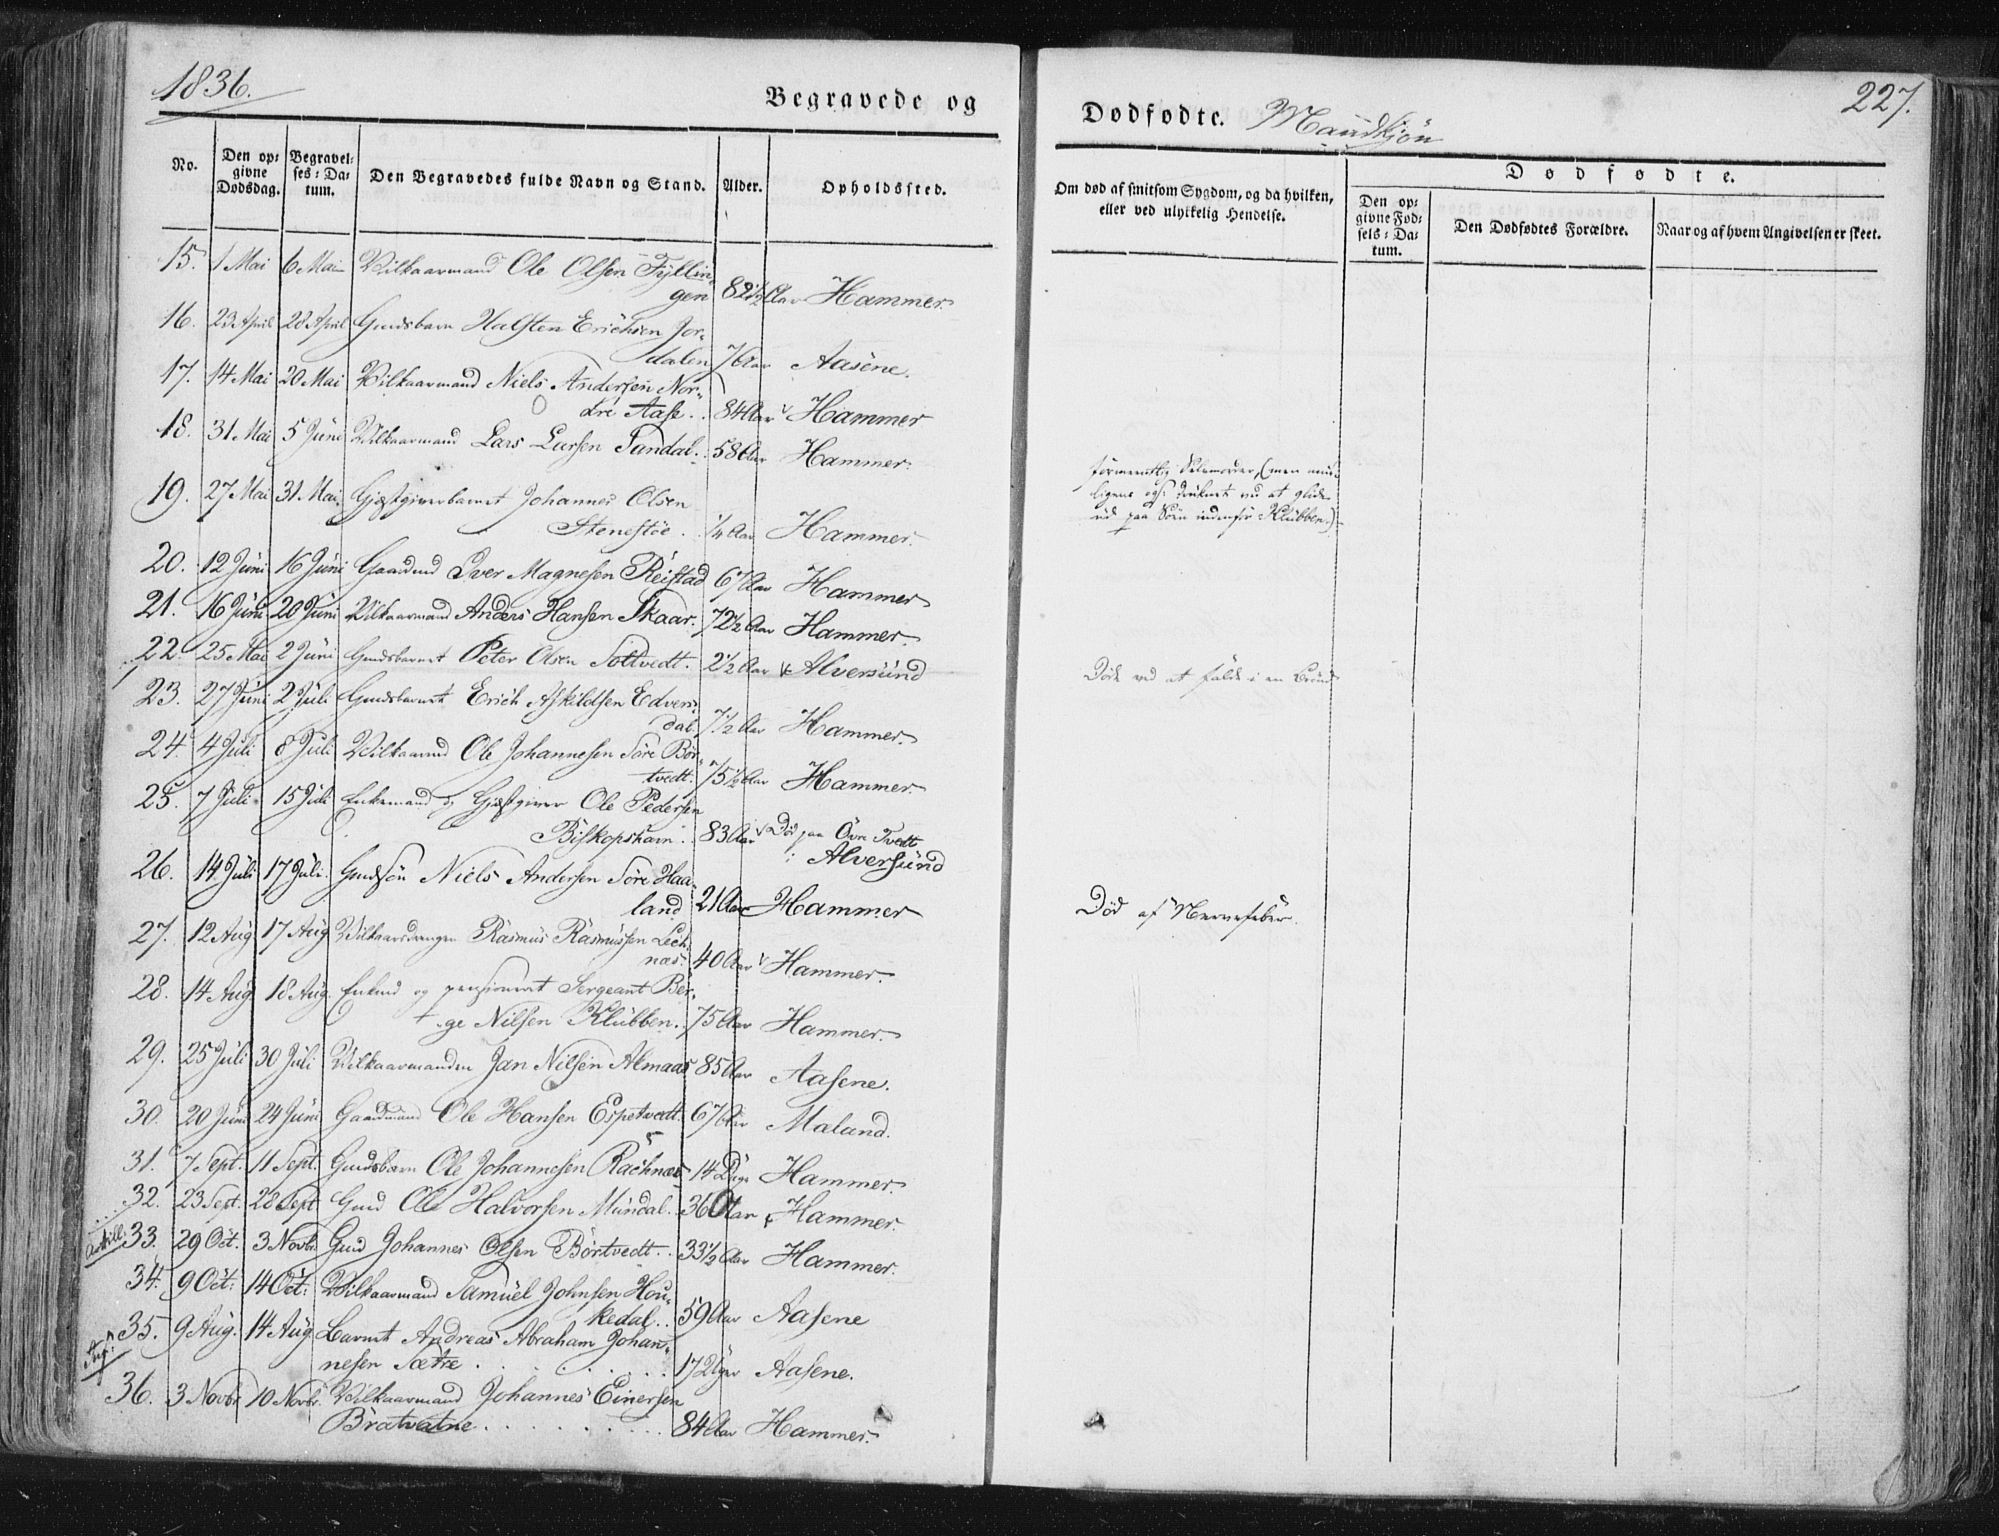 1836.
Begravede og
Dødfødte. Mandkjøn
227.
No.
Den opgivne Dødsdag.
Begravelses-Datum.
Den Begravedes fulde Navn og Stand.
Alder.
Opholdssted.
Om død af smitsom Sygdom, og da hvilken, eller ved ulykkelig Hendelse.
Dødfødte.
Den opgivne Fødsels-Datum.
Den Dødfødtes Forældre.
Naar og af hvem Angivelsen er skeet.
15. 1 Mai 6 Mai Vilkaarmand Ole Olsen Fyllin-
gen 82 1/2 Aar Hammer
16. 23 April 28 April Gmdsbarn Halsten Erichsen Jor-
dalen 7 Aar Aasene.
17. 14 Mai 20 Mai Vilkaarmand Niels Andersen Nor-
dre Aase. 84 Aar Hammer
18. 31 Mai 5 Juni Vilkaarmand Lars Larsen Tandal. 58 Aar Hammer.
ligens også druknet ved at glide
ud paa Søen indenfor Klubben.)
19. 27 Mai 31 Mai. Gjæstgiverbarnet Johannes Olsen
Stenestøe. 1/4 Aar Hammer.
20. 12 Juni 16 Juni Gaardmd Iver Magnesen Reistad 67 Aar Hammer
21. 16 Juni 20 Juni Vilkaarmand Anders Hansen Skaar. 72 1/2 Aar Hammer.
22. 25 Mai 2 Juni Gmdsbarnet Peter Olsen Soltvedt. 2 1/2 Aar Alversund
Døde ved at falde i en Brønd
23. 27 Juni 2 Juli Gmdsbarnet Erich Askildsen Edvers-
dal. 7 1/2 Aar Hammer.
24. 4 Juli 8 Juli Vilkaarmd Ole Johannesen Søre Bør-
tvedt. 75 1/2 Aar Hammer.
25. 7 Juli 15 Juli Enkemand og Gjæstgiver Ole Pedersen
Biskopshavn. 83 Aar Død paa Øvre Tvedt
i Alversund
26. 14 Juli 17 Juli. Gmdssøn Niels Andersen Søre Haa-
land 21 Aar Hammer
Død af Nervefeber.
27. 12 Aug 17 Aug Vilkaarsdrengen Rasmus Rasmussen Lech-
næs. 40 Aar Hammer.
28. 14 Aug 18 Aug. Enkmd og pensioneret Sergeant Bør-
ge Nilsen Klubben. 75 Aar Hammer.
29. 25 Juli 30 Juli Vilkaarmanden Jan Nilsen Almaas 85 Aar Aasene.
30. 20 Juni 24 Juni Gaadmand Ole Hansen Espetvedt. 67 Aar Mæland.
31. 7 Sept. 11 Sept. Gmdsbarn Ole Johannesen Rachnæs 14 Dage Hammer.
32. 23 Sept. 28 Sept. Gmd Ole Halvorsen Mundal. 36 Aar Hammer.
33. 29 Oct. 3 Novbr. Gmd Johannes Olsen Børtvedt. 33 1/2 Aar Hammer.
34. 9 Oct: 14 Oct: Vilkaarmand Samuel Johnsen Hou-
kedal. 59 Aar Aasene
35. 9 Aug. 14 Aug. Barnet Andreas Abraham Johan-
nesen Sætre 17 Uger Aasene.
36. 3 Novbr 10 Novbr. Vilkaarmand Johannes Einersen
Bratvatne 84 Aar Hammer.